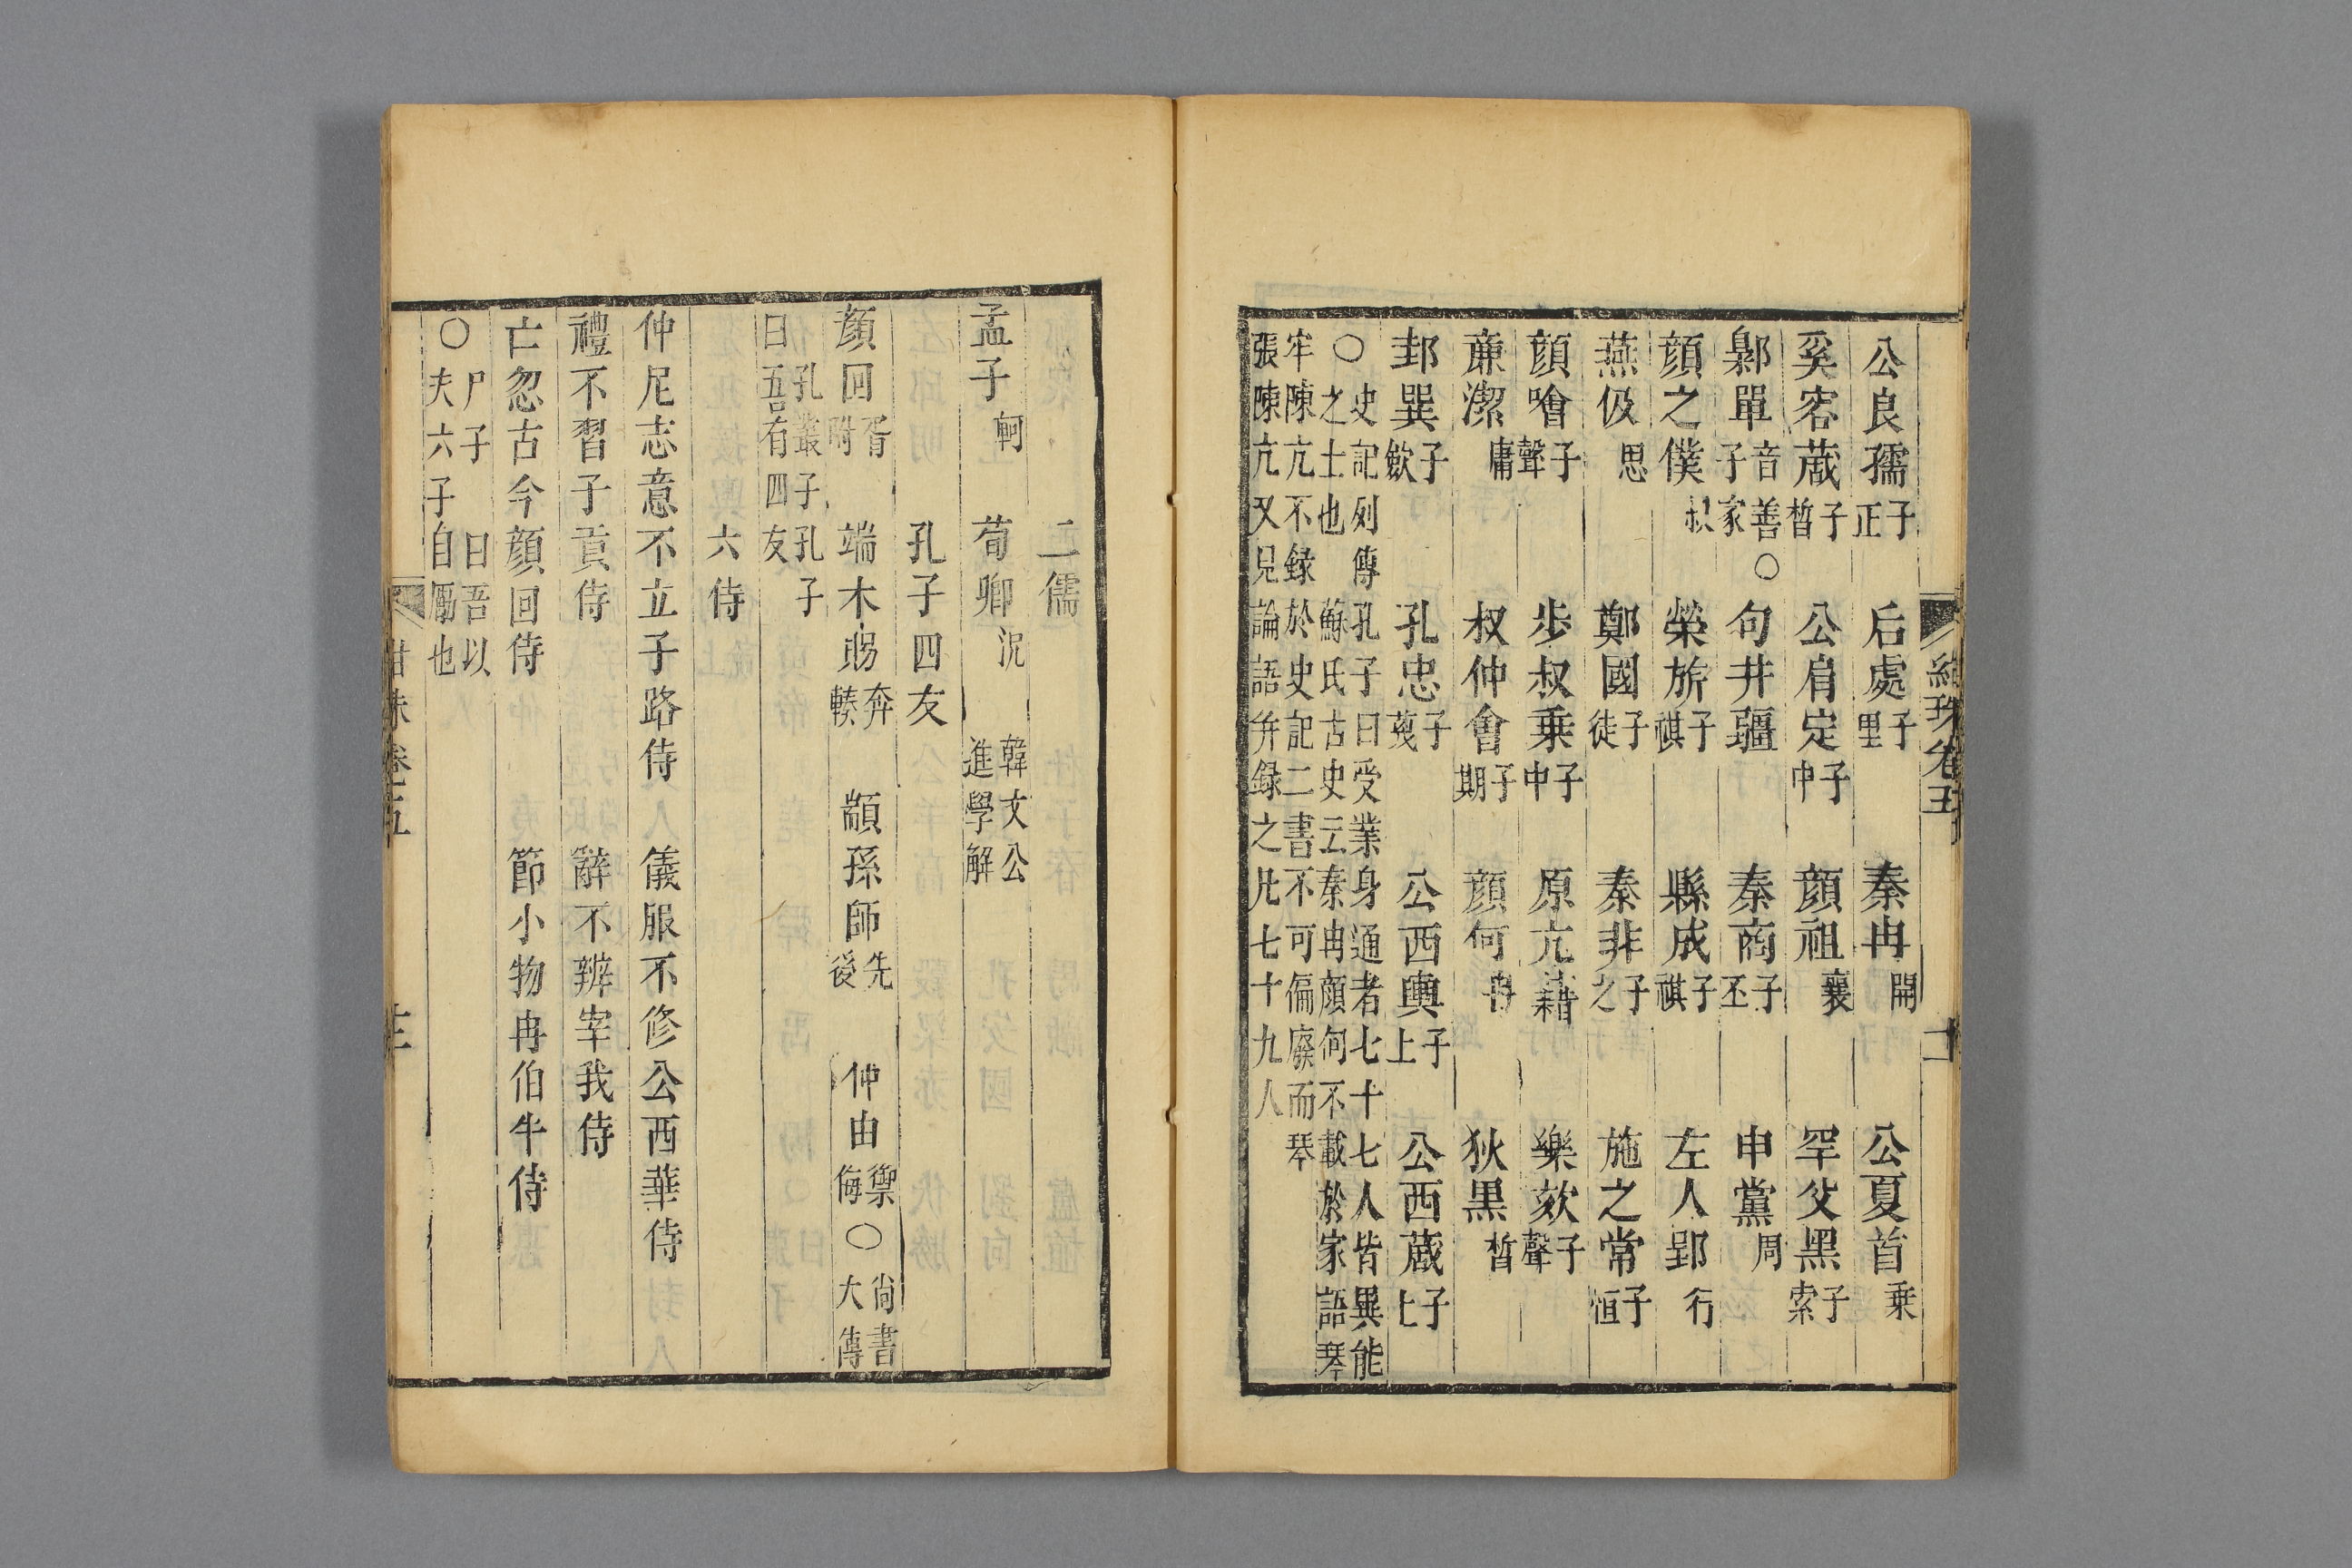 公良孺子正 后處子里 秦冉開 公夏首乗
奚容蒧子晳 公肩定子中 顔祖襄 罕父黑子索
鄡單音善○子家 句井疆 秦商子丕 申黨周
顔之僕叔 榮旂子祺 縣成子祺 左人郢行
燕伋思 鄭國子徒 秦非子之 施之常子恒
顔噲子聲 步叔乗子中 原亢籍 樂欬子聲
亷潔庸 叔仲會子期 顔何冉 狄黒晳
邽巽子歛 孔忠子蔑 公西輿子上 公西蒧子上
○史記列傳孔子曰受業身通者七十七人皆異能
之士也蘇氏古史云秦冉顔何不載於家語琴
牢陳亢不録於史記二書不可偏廢而琴
張陳亢又見論語并録之凡七十九人
紺珠卷五
二儒
孟子軻 荀卿況 韓文公進學解
孔子四友
顔回胥附 端木賜奔輳 顓孫師先後 仲由禦侮○尚書大傳
孔叢子孔子曰吾有四友
六侍
仲尼志意不立子路侍 儀服不修公西華侍
禮不習子貢侍 辭不辨宰我侍
亡忽古今顔回侍 節小物冉伯牛侍
○尸子曰吾以夫六子自厲也
紺珠卷五